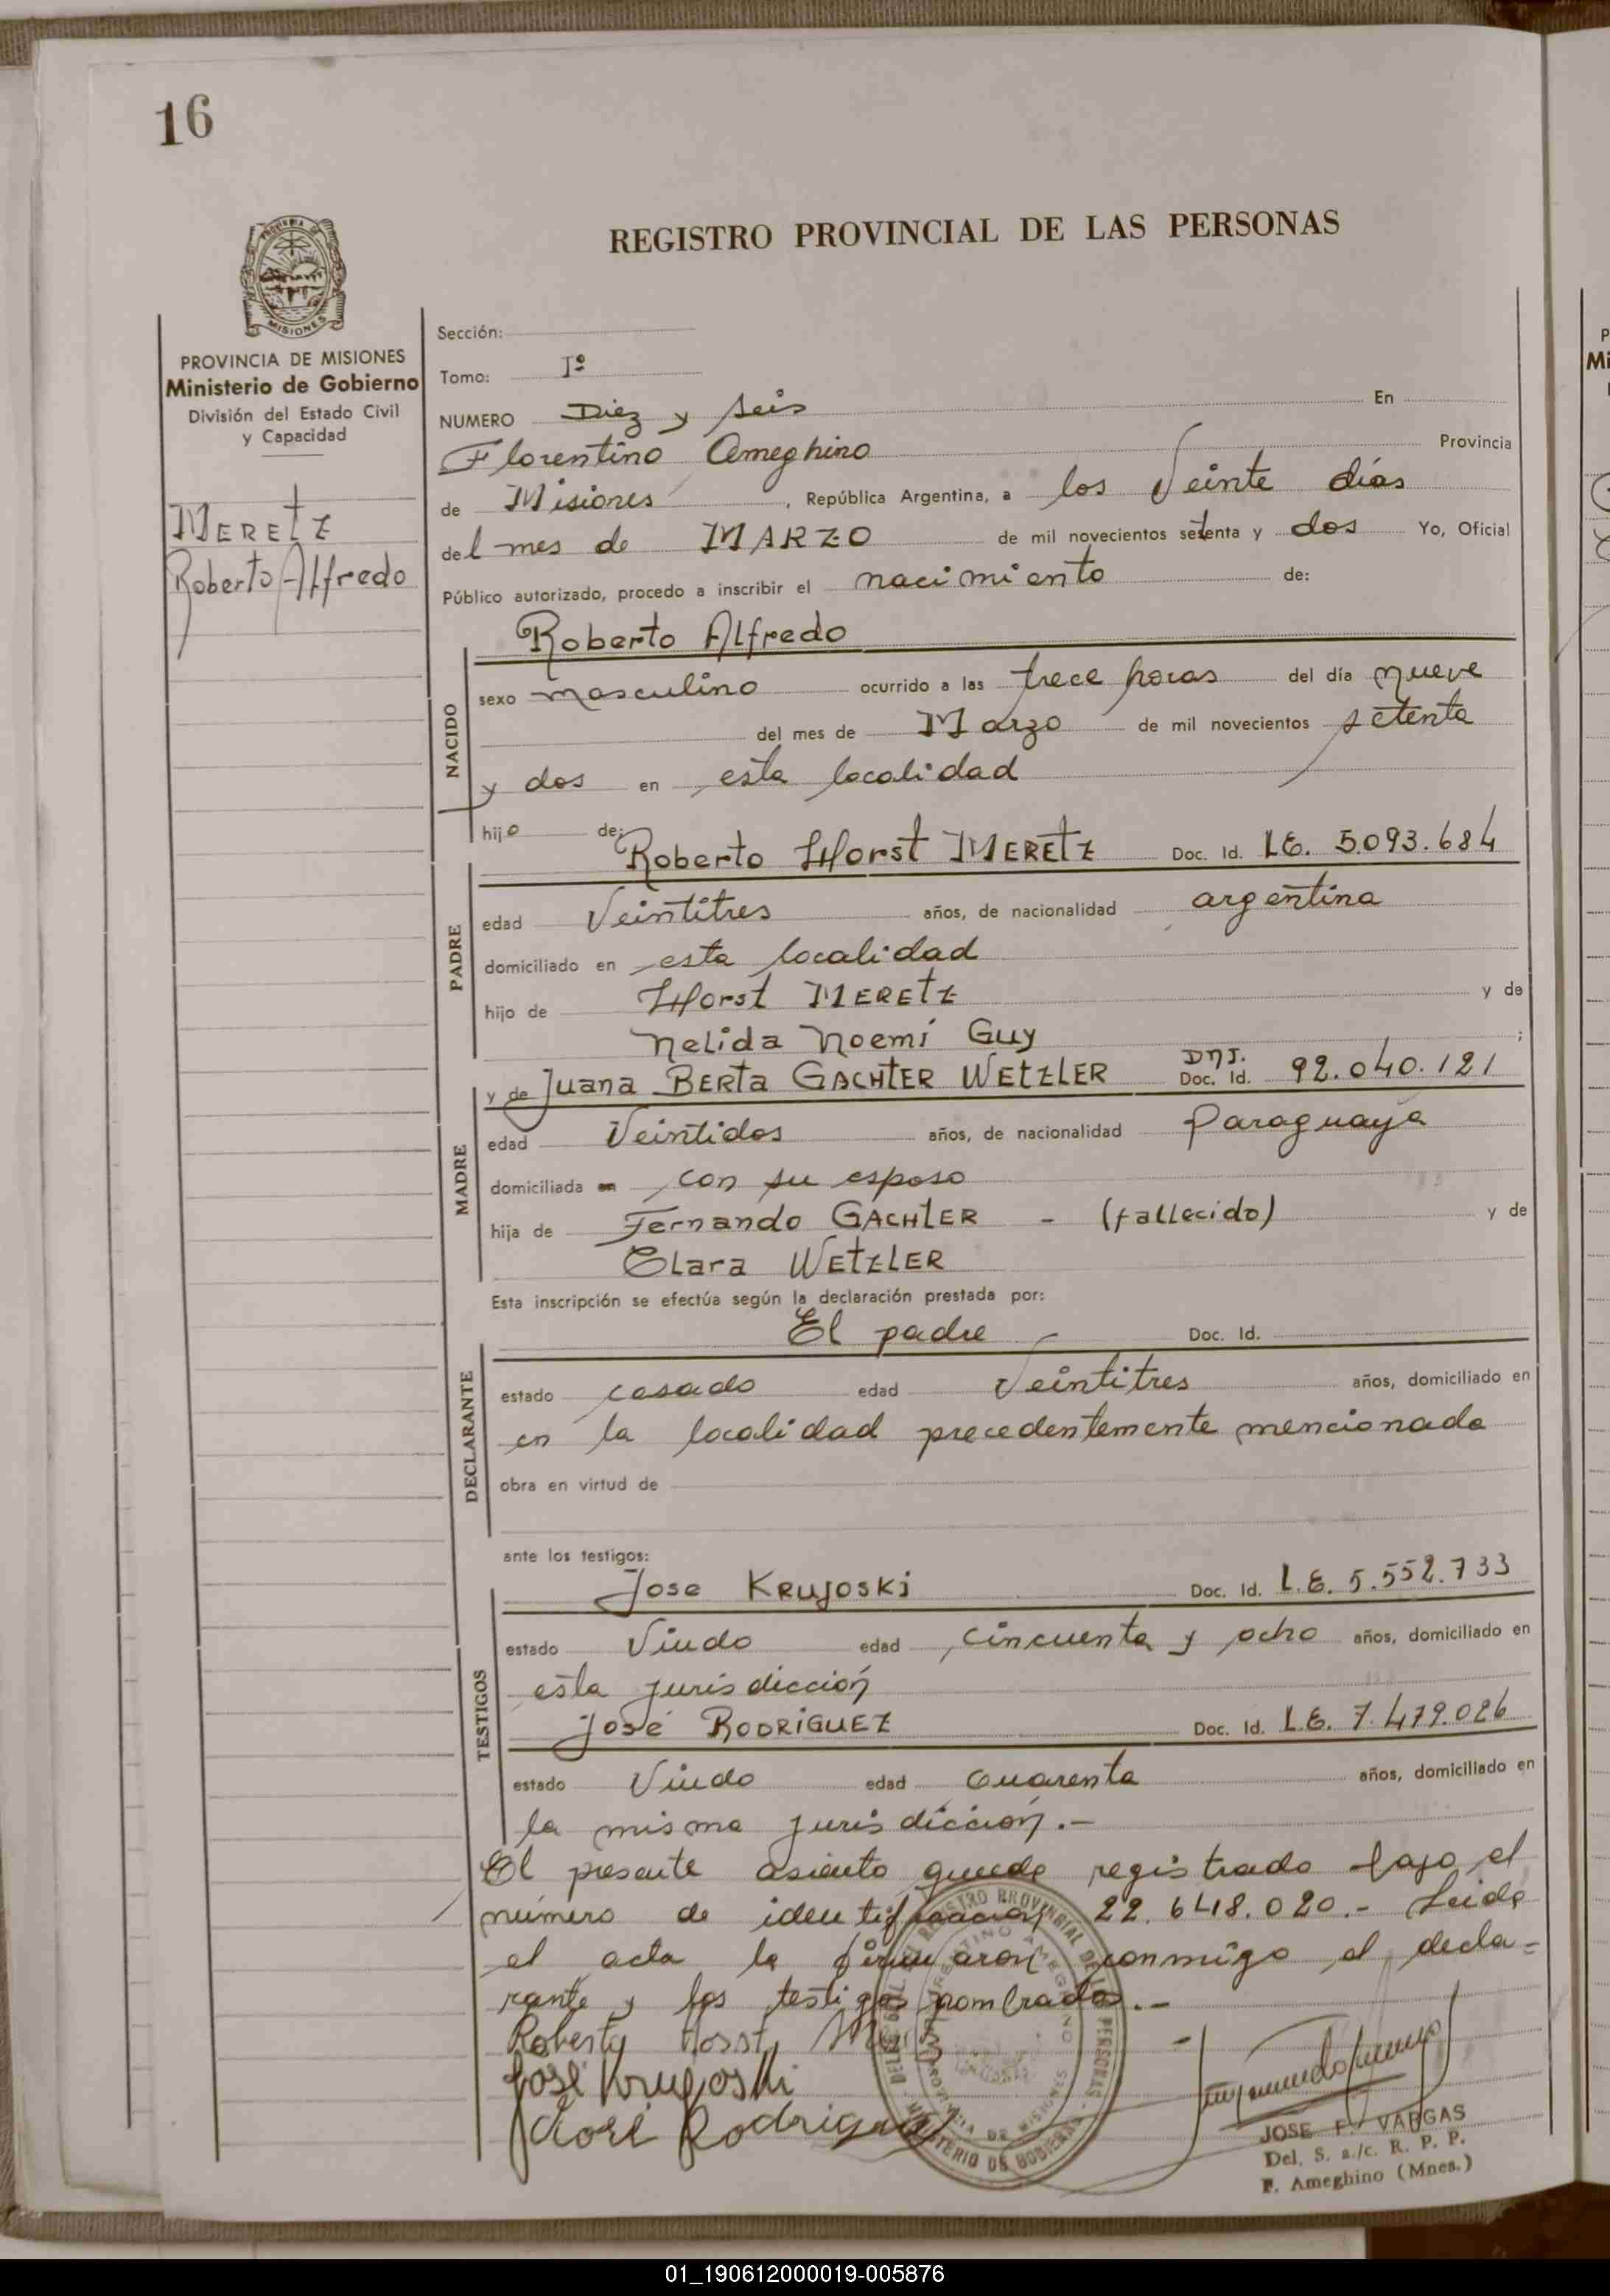 16
REGISTRO PROVINCIAL DE LAS PERSONAS
PROVINCIA DE MISIONES
Ministerio de Gobierno
División del Estado Civil
y Capacidad
MERETZ
Roberto Alfredo
Sección:
Tomo: Iº
NUMERO Diez y seis En
Florentino Ameghino Provincia
de Misiones, República Argentina, a los Veinte días
del mes de MARZO de mil novecientos setenta y dos Yo, Oficial
Público autorizado, procedo a inscribir el nacimiento de:
Roberto Alfredo
NACIDO
sexo masculino ocurrido a las trece horas del día nueve
del mes de Marzo de mil novecientos setenta
y dos en esta localidad
hijo de:
Roberto Horst MERETZ Doc. Id. L.E. 5.093.684
PADRE
edad Veintitres años, de nacionalidad argentina
domiciliado en esta localidad
hijo de Horst MERETZ y de
Nelida Noemí Guy ;
y de Juana BERTA GACHTER WETZLER DNI. Doc. Id. 92.040.121
MADRE
edad Veintidos años, de nacionalidad Paraguaya
domiciliada en con su esposo
hija de Fernando GACHTER - (fallecido) y de
Clara WETZLER
Esta inscripción se efectúa según la declaración prestada por:
El padre Doc. Id.
DECLARANTE
estado casado edad Veintitres años, domiciliado en
en la localidad precedentemente mencionada
obra en virtud de
ante los testigos:
Jose KRUJOSKI Doc. Id. L.E. 5.552.733
TESTIGOS
estado Viudo edad cincuenta y ocho años, domiciliado en
esta jurisdicción
José RODRIGUEZ Doc. Id. L.E. 7.479.026
estado Viudo edad cuarenta años, domiciliado en
la misma jurisdicción.-
El presente asiento queda registrado bajo el
número de identificación 22.648.020.- Leida
el acta la firmaron conmigo el decla=
rante y los testigos nombrados.-
Roberto Horst
José Krujoski
José Rodriguez
JOSE F. VARGAS
Del. S. a./c. R. P. P.
F. Ameghino (Mnes.)
01_190612000019-005876